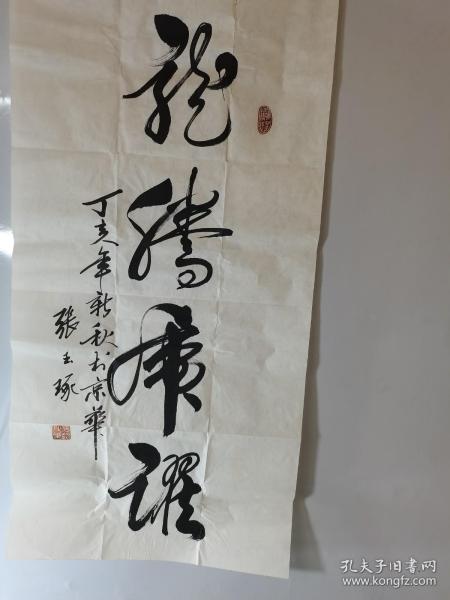 龍騰虎躍
丁亥年新秋於京華
張玉琢
孔夫子旧书网
www.kongfz.com